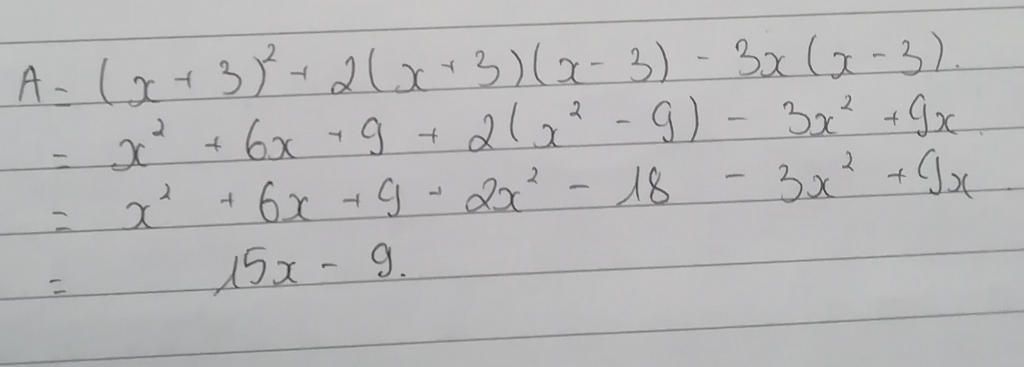 A = (x + 3)² + 2(x + 3)(x - 3) - 3x(x - 3).
= x² + 6x + 9 + 2(x² - 9) - 3x² + 9x
= x² + 6x + 9 + 2x² - 18 - 3x² + 9x
= 15x - 9.